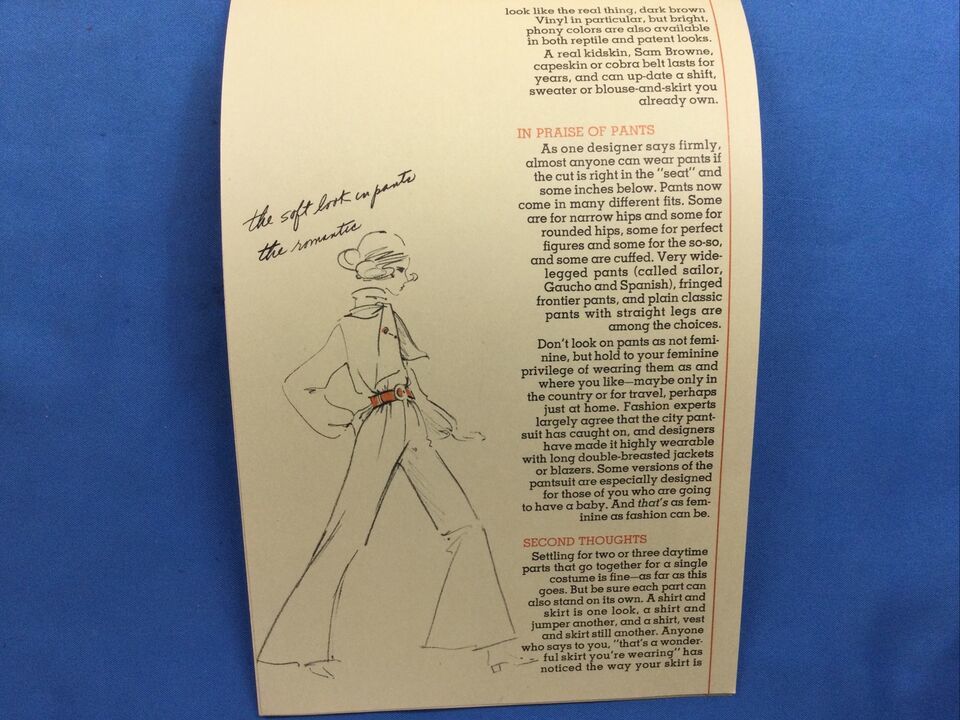 look like the real thing, dark brown
Vinyl in particular, but bright,
phony colors are also available
in both reptile and patent looks.
A real kidskin, Sam Browne,
capeskin or cobra belt lasts for
years, and can up-date a shift,
sweater or blouse-and-skirt you
already own.
IN PRAISE OF PANTS
As one designer says firmly,
almost anyone can wear pants if
the cut is right in the "seat" and
some inches below. Pants now
come in many different fits. Some
are for narrow hips and some for
rounded hips, some for perfect
figures and some for the so-so,
and some are cuffed. Very wide-
legged pants (called sailor,
Gaucho and Spanish), fringed
frontier pants, and plain classic
pants with straight legs are
among the choices.
Don't look on pants as not femi-
nine, but hold to your feminine
privilege of wearing them as and
where you like—maybe only in
the country or for travel, perhaps
just at home. Fashion experts
largely agree that the city pant-
suit has caught on, and designers
have made it highly wearable
with long double-breasted jackets
or blazers. Some versions of the
pantsuit are especially designed
for those of you who are going
to have a baby. And that's as fem-
inine as fashion can be.
SECOND THOUGHTS
Settling for two or three daytime
parts that go together for a single
costume is fine—as far as this
goes. But be sure each part can
also stand on its own. A shirt and
skirt is one look, a shirt and
jumper another, and a shirt, vest
and skirt still another. Anyone
who says to you, "that's a wonder-
ful skirt you're wearing" has
noticed the way your skirt is
the soft look in pants
the romantic